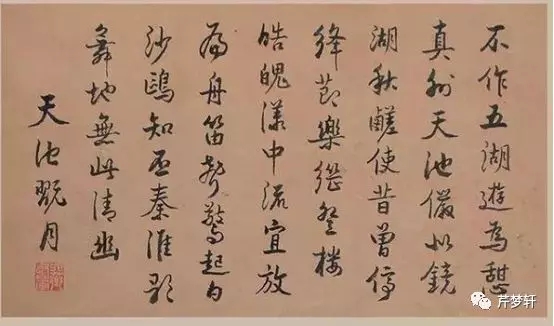 不作五湖遊為憇
真州天池儼似鏡
湖秋鹺使昔曾停
絳節樂登樓
皓魄漾中流宜放
扁舟笛聲驚起白
沙鷗知否秦淮歌
舞地無此清幽
天池翫月
芹梦轩